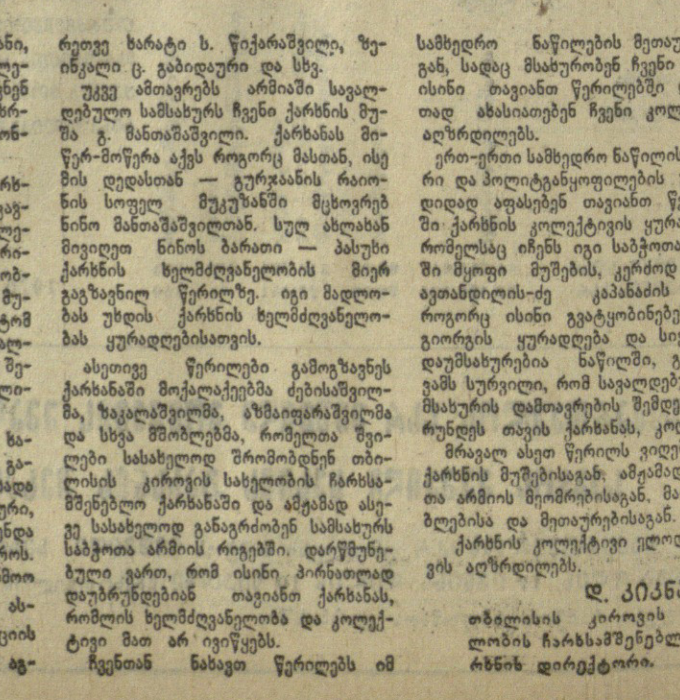 ანი,
ლე-
ვნენ
ხრ-
ონ-
რხ-
კაგ-
ლე-
რი-
ობ-
მუ-
ტომ
ალ-
შე-
ლი-
ხა-
გა-
ბადა
ური,
ენდა
როს.
იმოო
ას-
ციის
აგ-
რეთვე ხარატი ს. წიქარაშვილი, ზე-
ინკალი ც. გაბიდაური და სხვ.
უკვე ამთავრებს არმიაში სავალ-
დებულო სამსახურს ჩვენი ქარხნის მუ-
შა გ. მანთაშაშვილი. ქარხანას მი-
წერ-მოწერა აქვს როგორც მასთან, ისე
მის დედასთან — გურჯაანის რაიო-
ნის სოფელ მუკუზანში მცხოვრებ
ნინო მანთაშაშვილთან. სულ ახლახან
მივიღეთ ნინოს ბარათი — პასუხი
ქარხნის ხელმძღვანელობის მიერ
გაგზავნილ წერილზე. იგი მადლო-
ბას უხდის ქარხნის ხელმძღვანელო-
ბას ყურადღებისათვის.
ასეთივე წერილები გამოგზავნეს
ქარხანაში მოქალაქეებმა ძებისაშვილ-
მა, ზაკალაშვილმა, აზმაიფარაშვილმა
და სხვა მშობლებმა, რომელთა შვი-
ლები სასახელოდ შრომობდნენ თბი-
ლისის კიროვის სახელობის ჩარხსა-
მშენებლო ქარხანაში და ამჟამად ასე-
ვე სასახელოდ განაგრძობენ სამსახურს
საბჭოთა არმიის რიგებში. დარწმუნე-
ბული ვართ, რომ ისინი პირნათლად
დაუბრუნდებიან თავიანთ ქარხანას,
რომლის ხელმძღვანელობა და კოლექ-
ტივი მათ არ ივიწყებს.
ჩვენთან ნახავთ წერილებს იმ
სამხედრო ნაწილების მეთაუ
გან, სადაც მსახურობენ ჩვენი
ისინი თავიანთ წერილებში
თად ახასიათებენ ჩვენი კოლ
აღზრდილებს.
ერთ-ერთი სამხედრო ნაწილის
რი და პოლიტგანყოფილების
დიდად აფასებენ თავიანთ წე
ში ქარხნის კოლექტივის ყურა
რომელსაც იჩენს იგი საბჭოთა
ში მყოფი მუშების, კერძოდ
ავთანდილის-ძე კაპანაძის
როგორც ისინი გვატყობინებე
გიორგის ყურადღება და სიყ
დაუმსახურებია ნაწილში, გ
ვამს სურვილი, რომ სავალდებ
მსახურის დამთავრების შემდე
რუნდეს თავის ქარხანას, კოლ
მრავალ ასეთ წერილს ვიღებ
ქარხნის მუშებისაგან, ამჟამად
თა არმიის მეომრებისაგან, მა
ბლებისა და მეთაურებისაგან.
ქარხნის კოლექტივი ელოდ
ვის აღზრდილებს.
დ. კიკნა
თბილისის კიროვის
ლობის ჩარხსამშენებლ
რხნის დირექტორი.